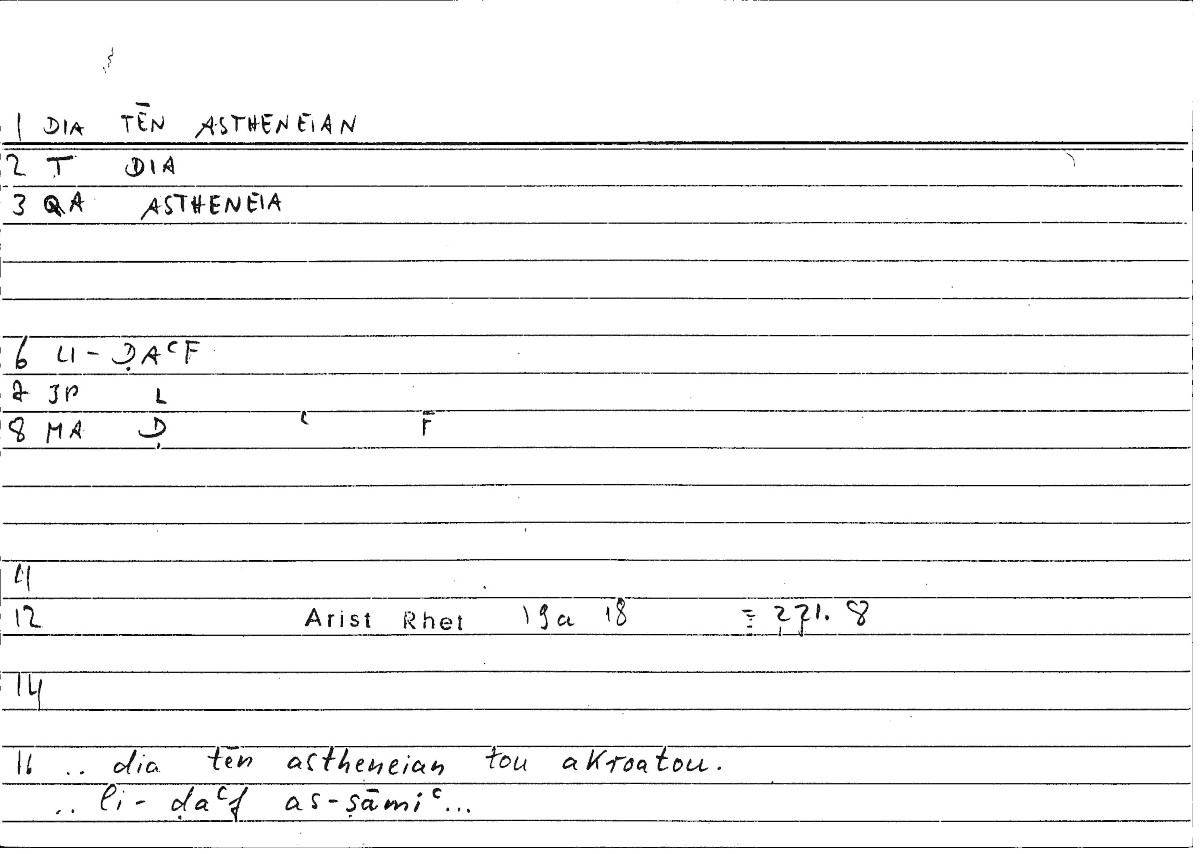 1 DIA TĒN ASTHENEIAN
2 T DIA
3 QA ASTHENEIA
6 LI-ḌAᶜF
7 JP L
8 MA Ḍ ᶜ F
11
12 Arist Rhet 19a 18 = 221. 8
14
16 .. dia tēn astheneian tou akroatou.
.. li-ḍaᶜf as-ṣāmiᶜ...